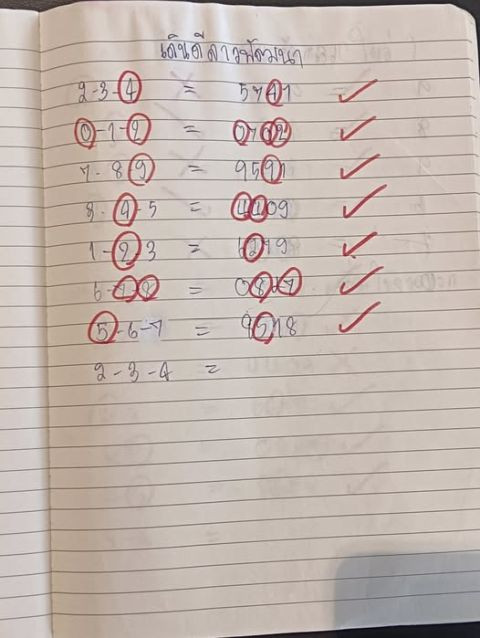 เดินดีลาวพัฒนา
2-3-4 = 5741
0-1-2 = 0712
7-8 9 = 9591
3-4-5 = 4409
1-2-3 = 6279
6-7-8 = 0827
5-6-7 = 9518
2-3-4 =